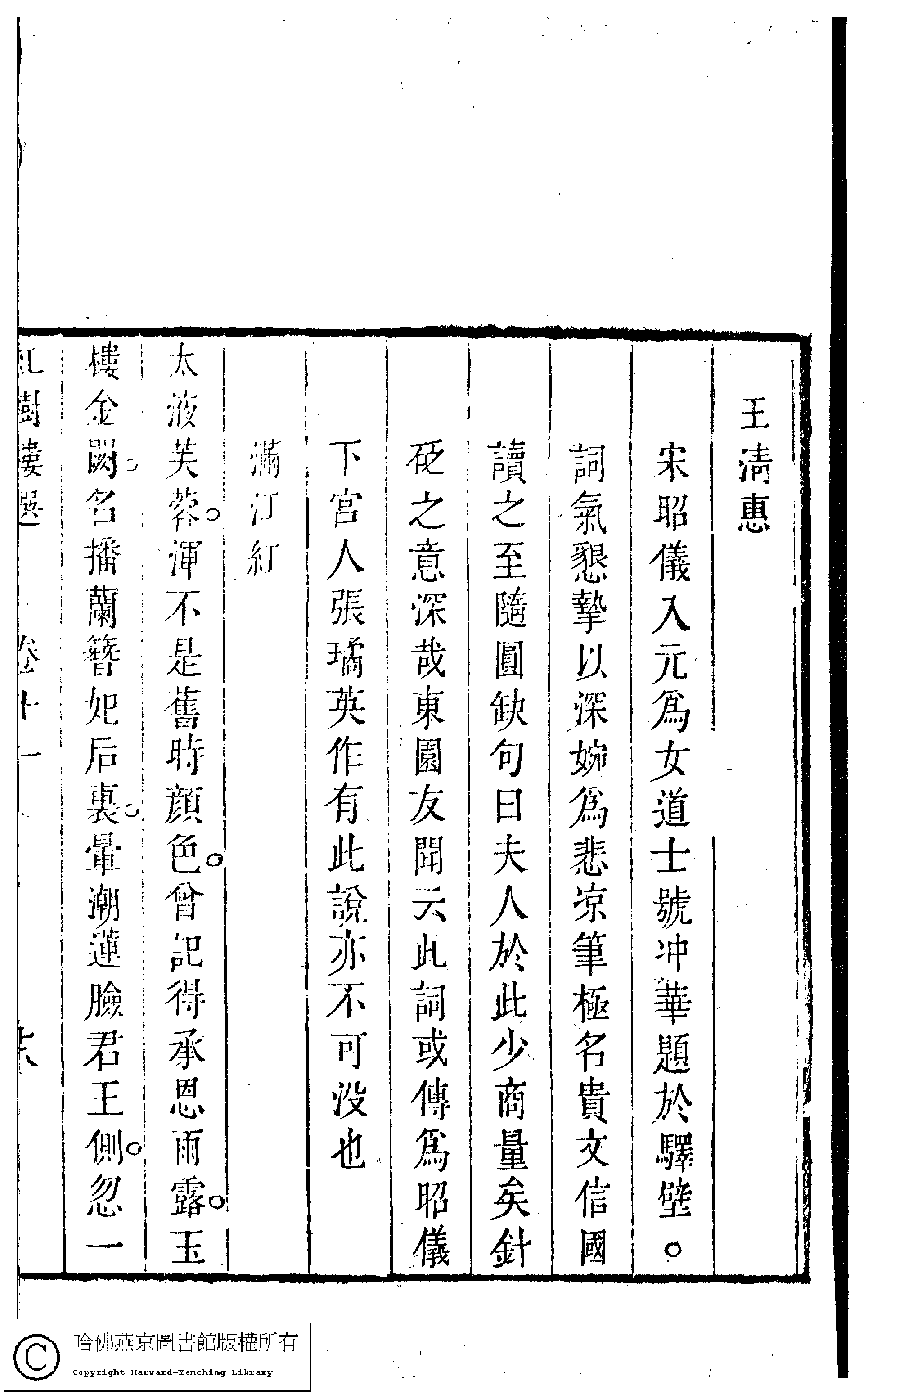 王清惠
宋昭儀入元爲女道士號冲華題於驛壁。
詞氣懇摯以深婉爲悲凉筆極名貴文信國
讀之至隨圓缺句曰夫人於此少商量矣針
砭之意深哉東園友聞云此詞或傳爲昭儀
下宮人張璚英作有此說亦不可没也
滿江紅
太液芙蓉。渾不是舊時顔色。曾記得承恩雨露。玉
樓金闕。名播蘭簪妃后裏。暈潮蓮臉君王側。忽一
紅樹樓選 卷十一
哈佛燕京圖書館版權所有
Copyright Harvard-Yenching Library